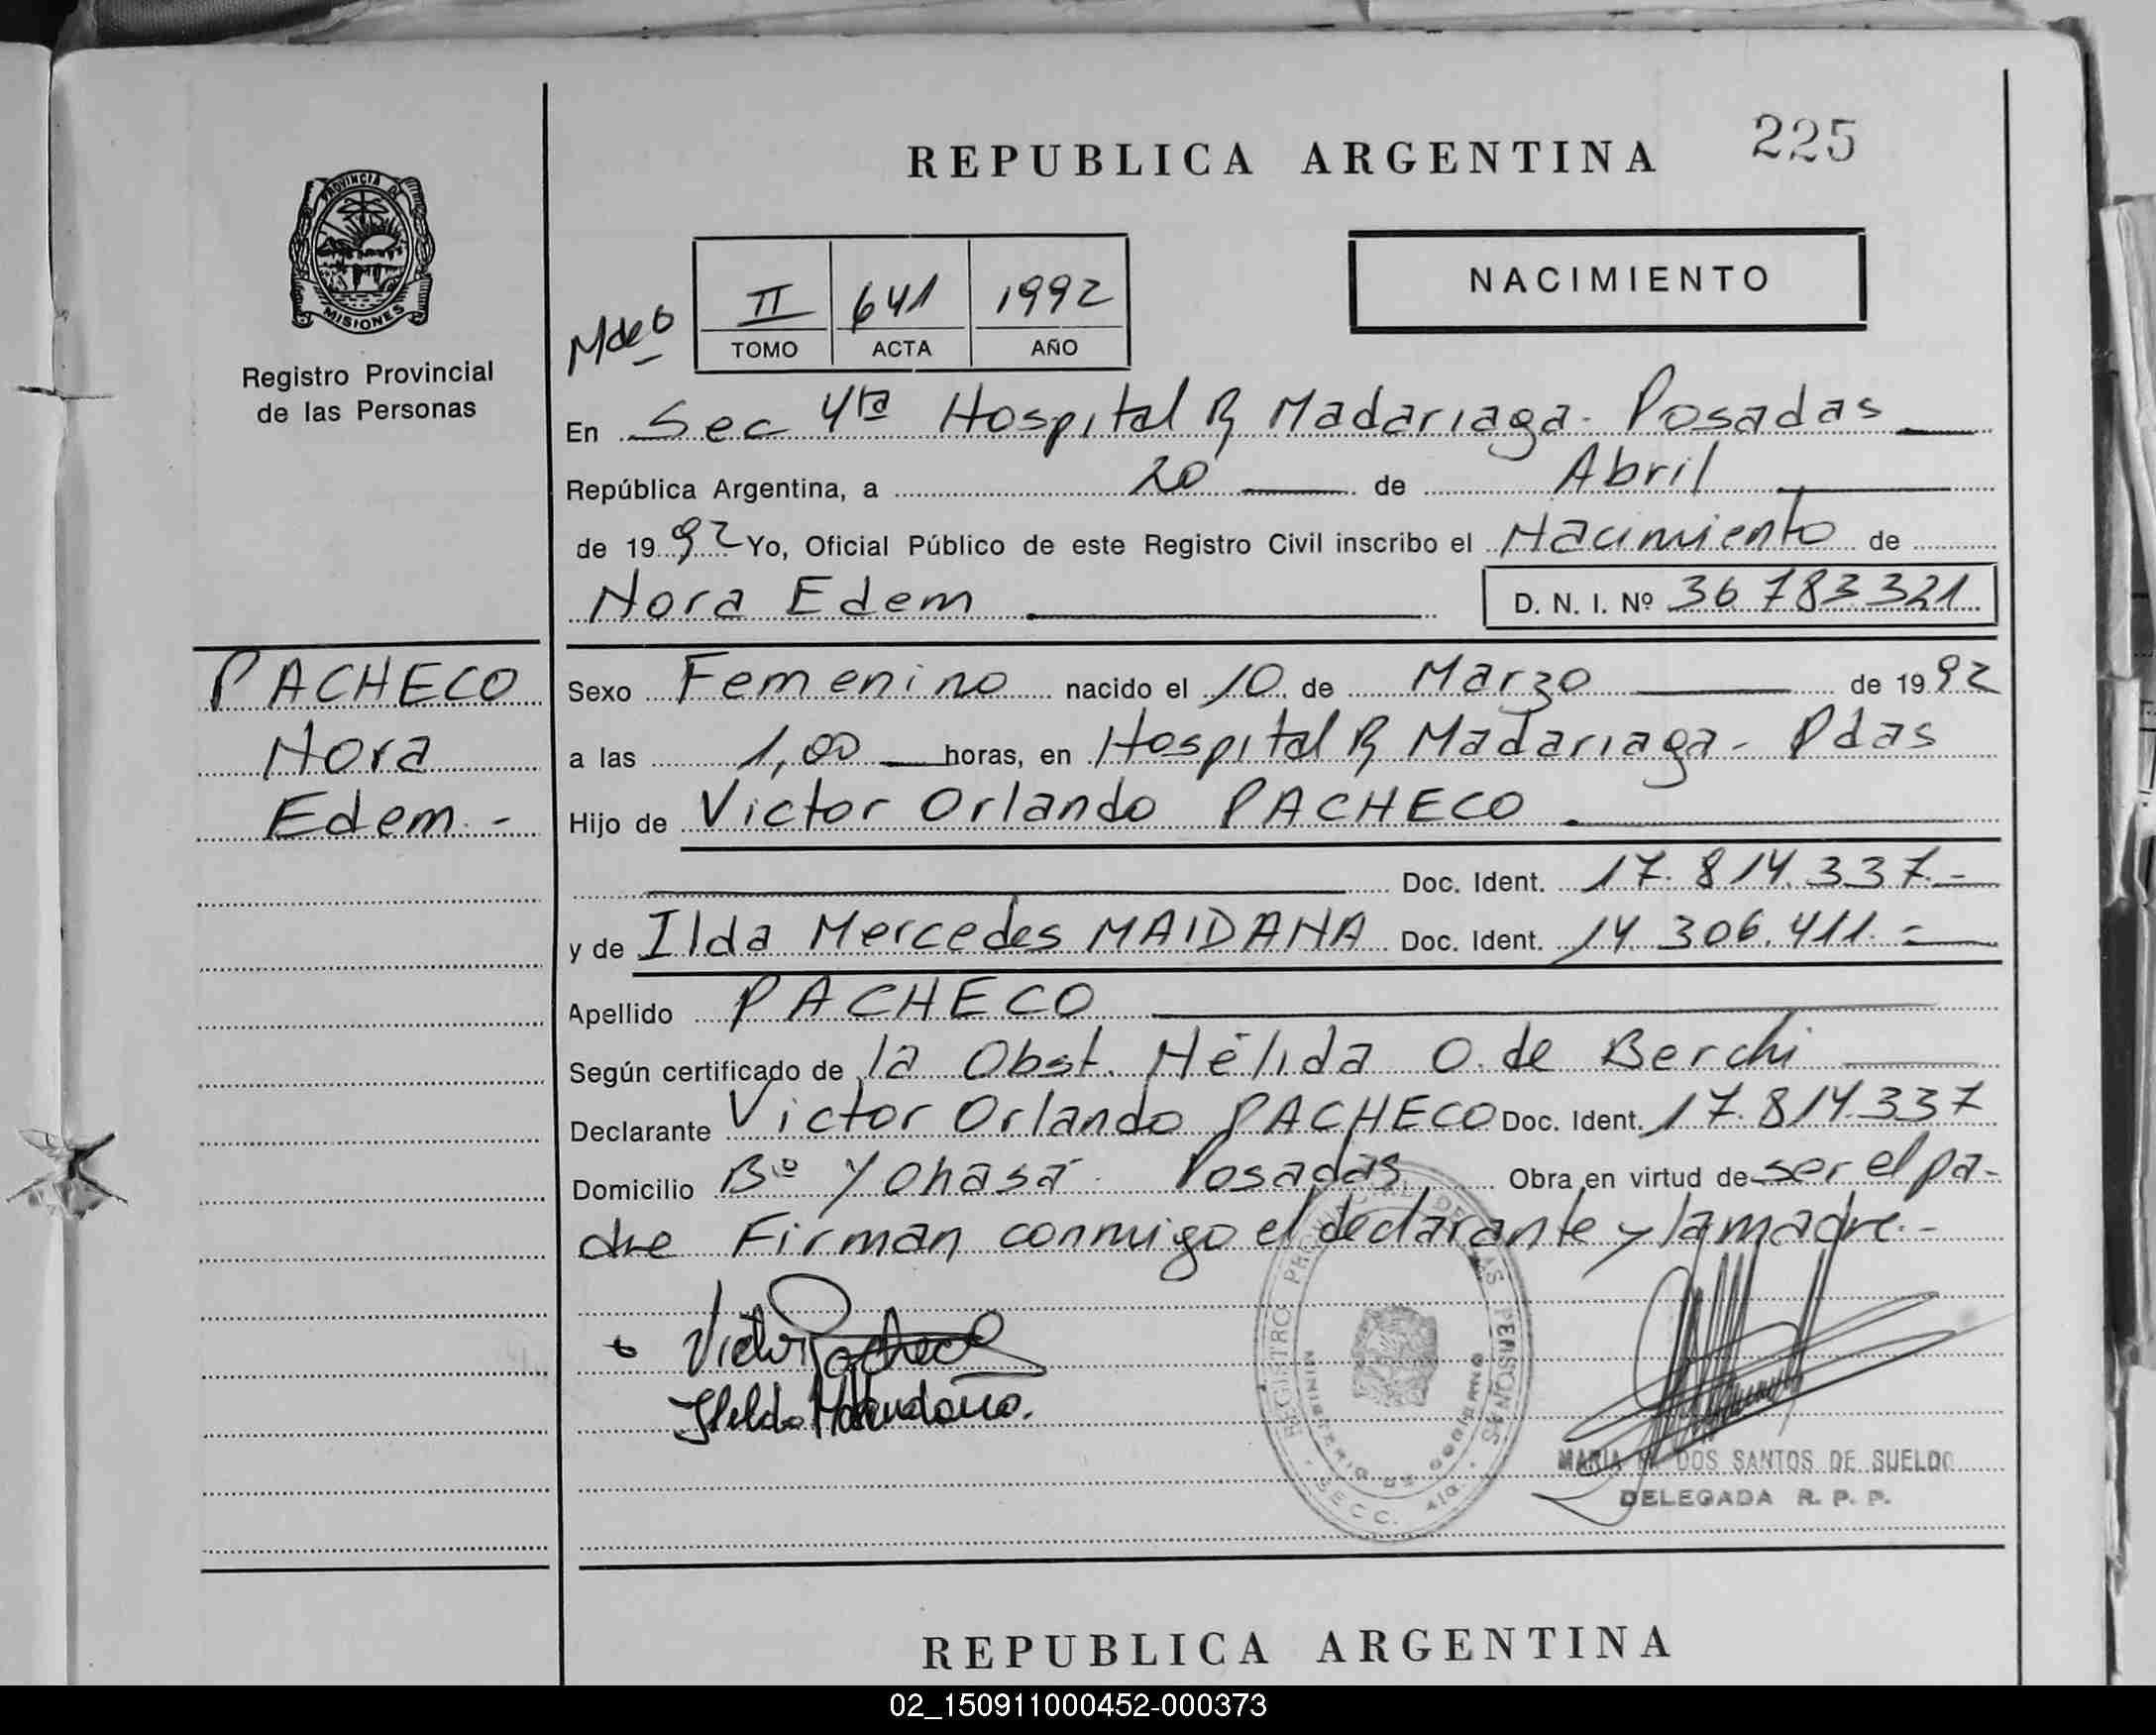 225
REPUBLICA ARGENTINA
PROVINCIA DE
MISIONES
Registro Provincial
de las Personas
NACIMIENTO
II 641 1992
TOMO ACTA AÑO
En Sec 4ta Hospital R Madariaga - Posadas
República Argentina, a 20 de Abril
de 1992 Yo, Oficial Público de este Registro Civil inscribo el Nacimiento de
Nora Edem D. N. I. Nº 36 783321
PACHECO
Nora
Edem -
Sexo Femenino nacido el 10 de Marzo de 1992
a las 1,00 horas, en Hospital R Madariaga - Pdas
Hijo de Victor Orlando PACHECO
Doc. Ident. 17.814.337.-
y de Ilda Mercedes MAIDANA Doc. Ident. 14.306.411.-
Apellido PACHECO
Según certificado de la Obst. Nélida O. de Berchi
Declarante Victor Orlando PACHECO Doc. Ident. 17.814.337
Domicilio Bº Yohasá - Posadas Obra en virtud de ser el pa-
dre Firman conmigo el declarante y la madre.-
Victor Pacheco
REGISTRO PROVINCIAL DE LAS PERSONAS
MINISTERIO DE GOBIERNO
SECC. 4ta.
MARIA DOS SANTOS DE SUELDO
DELEGADA R. P. P.
REPUBLICA ARGENTINA
02_150911000452-000373